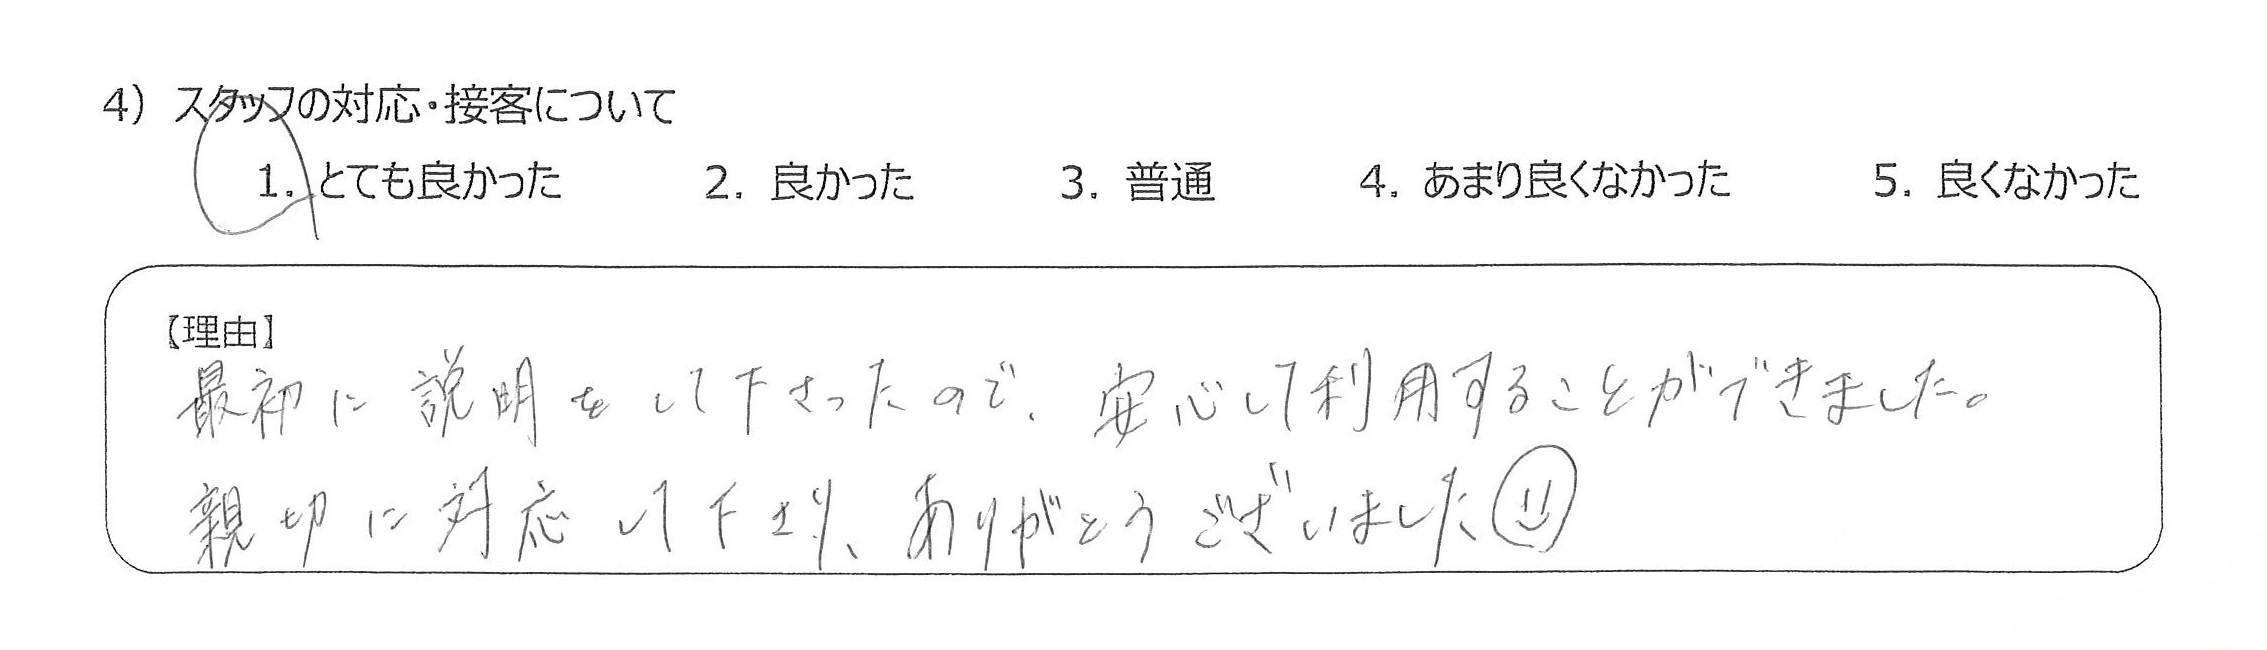 4) スタッフの対応・接客について
1. とても良かった 2. 良かった 3. 普通 4. あまり良くなかった 5. 良くなかった
【理由】
最初に説明をして下さったので、安心して利用することができました。
親切に対応して下さり、ありがとうございました